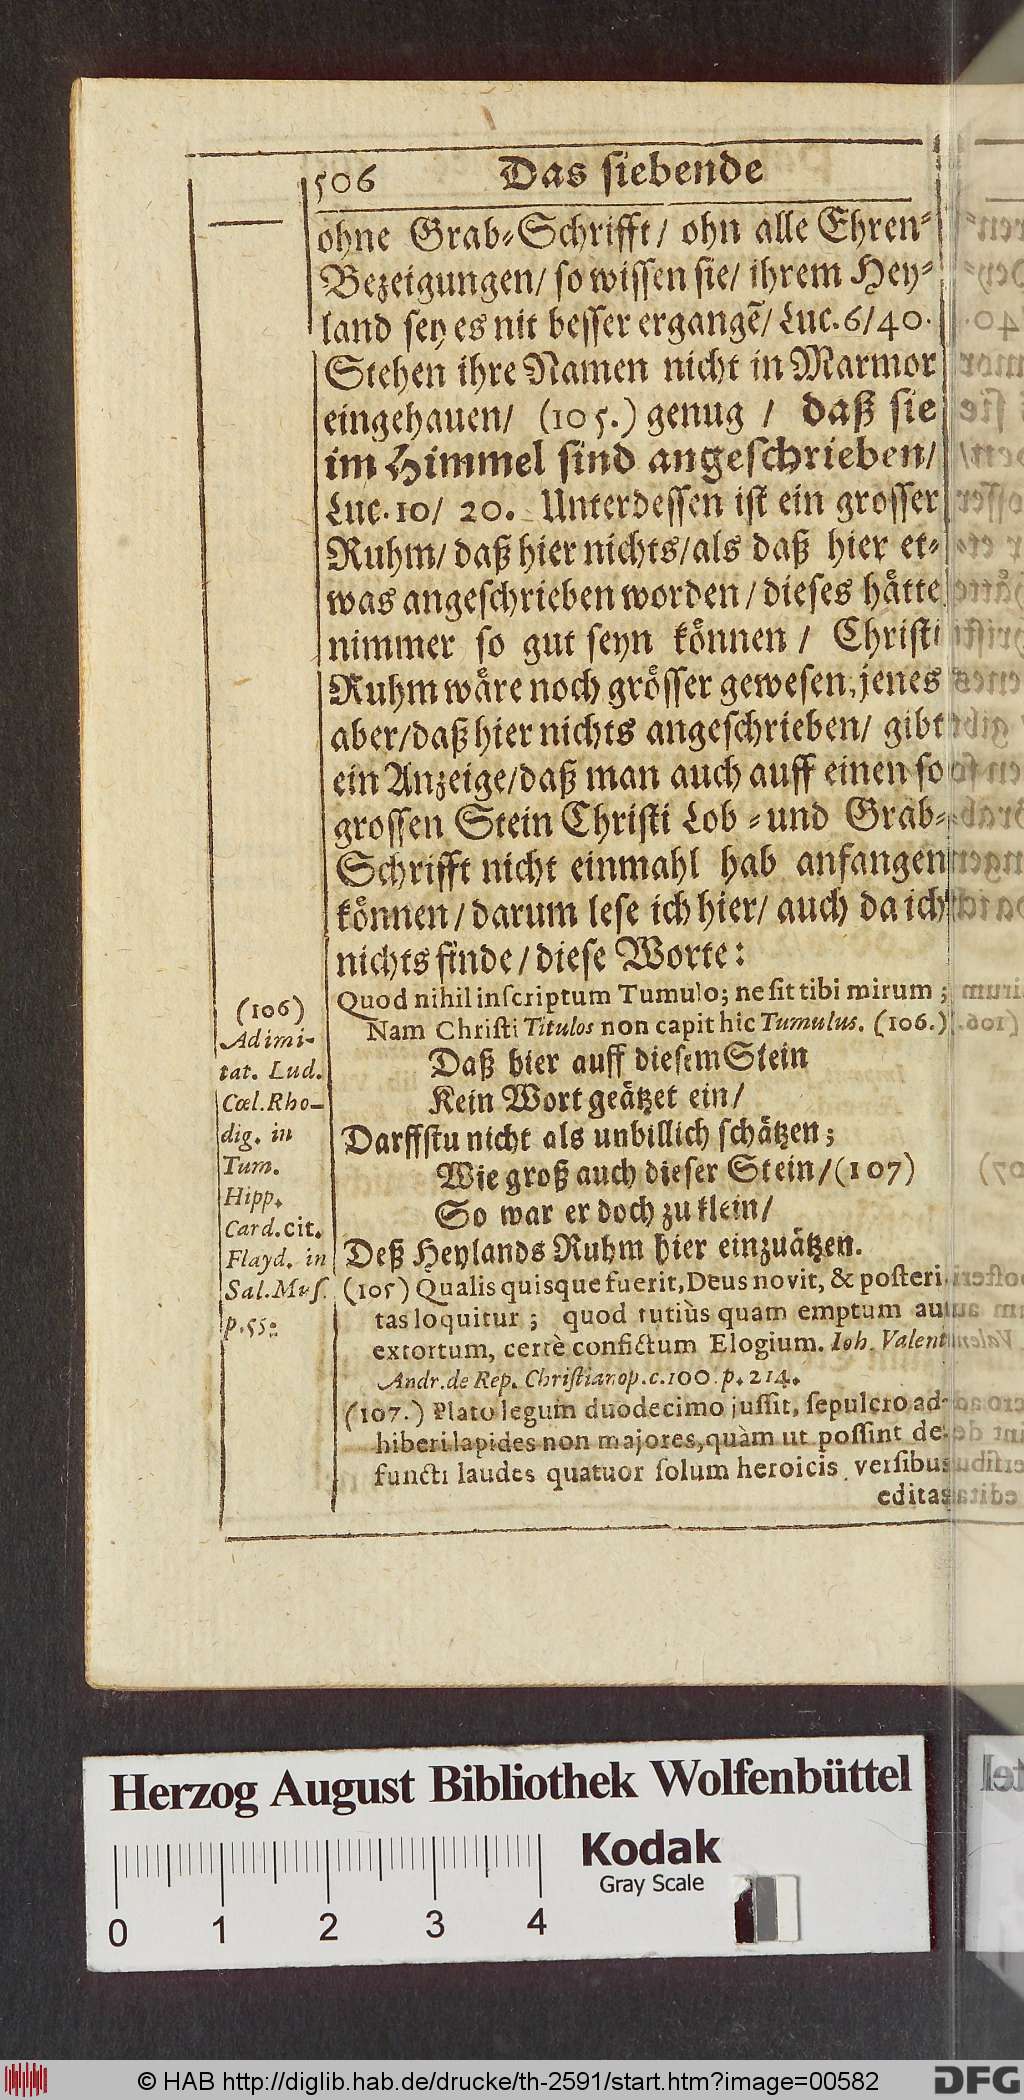 506
Das siebende
ohne Grab-Schrifft/ ohn alle Ehren-
Bezeigungen/ so wissen sie/ ihrem Hey-
land sey es nit besser ergangẽ/ Luc. 6/40.
Stehen ihre Namen nicht in Marmor
eingehauen/ (105.) genug / daß sie
im Himmel sind angeschrieben/
Luc. 10/ 20. Unterdessen ist ein grosser
Ruhm/ daß hier nichts/ als daß hier et-
was angeschrieben worden / dieses hätte
nimmer so gut seyn können / Christi
Ruhm wäre noch grösser gewesen, jenes
aber/ daß hier nichts angeschrieben/ gibt
ein Anzeige/ daß man auch auff einen so
grossen Stein Christi Lob- und Grab-
Schrifft nicht einmahl hab anfangen
können / darum lese ich hier/ auch da ich
nichts finde / diese Worte:
Quod nihil inscriptum Tumulo; ne sit tibi mirum;
Nam Christi Titulos non capit hic Tumulus. (106.)
Daß hier auff diesem Stein
Kein Wort geätzet ein/
Darffstu nicht als unbillich schätzen;
Wie groß auch dieser Stein/ (107)
So war er doch zu klein/
Deß Heylands Ruhm hier einzuätzen.
(106)
Ad imi-
tat. Lud.
Cœl. Rho-
dig. in
Tum.
Hipp.
Card. cit.
Flayd. in
Sal. Mus.
p. 55.
(105) Qualis quisque fuerit, Deus novit, & posteri-
tas loquitur; quod tutiùs quàm emptum au
extortum, certè confictum Elogium. Ioh. Valent
Andr. de Rep. Christianop. c. 100. p. 214.
(107.) Plato legum duodecimo jussit, sepulcro ad-
hiberi lapides non majores, quàm ut possint de-
functi laudes quatuor solum heroicis versibus
editas
Herzog August Bibliothek Wolfenbüttel
Kodak
Gray Scale
0 1 2 3 4
© HAB http://diglib.hab.de/drucke/th-2591/start.htm?image=00582
DFG